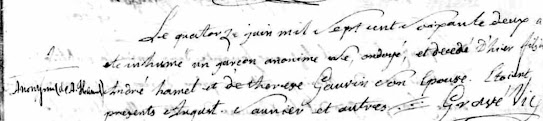 Le quatorze juin mil sept cent soixante deux a
eté inhumé un garçon anonime né, ondoyé, et decedé d'hier fils de
André hamel et de therese Gauvin son Epouse. Etoient
presents August. et autres Gravé Vic